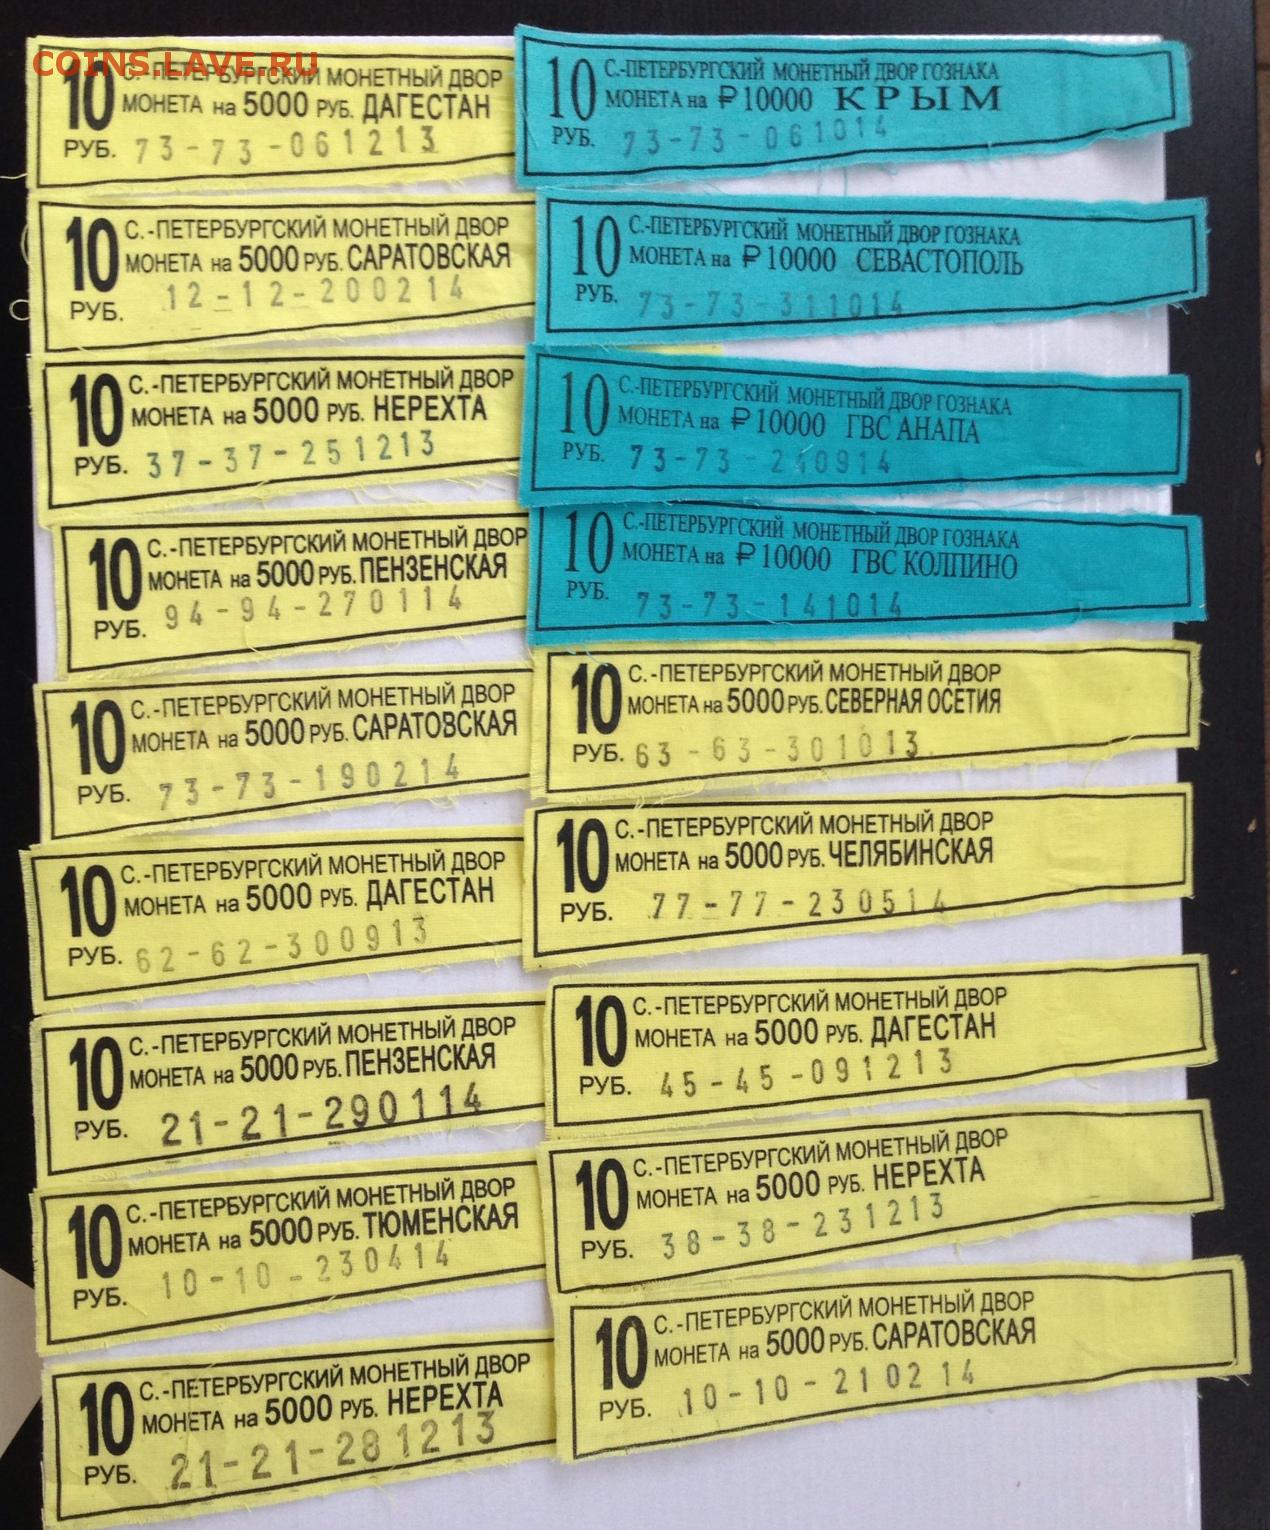 COINS.LAVE.RU
10 С.-ПЕТЕРБУРГСКИЙ МОНЕТНЫЙ ДВОР
МОНЕТА на 5000 РУБ. ДАГЕСТАН
РУБ. 73-73-061213
10 С.-ПЕТЕРБУРГСКИЙ МОНЕТНЫЙ ДВОР
МОНЕТА на 5000 РУБ. САРАТОВСКАЯ
РУБ. 12-12-200214
10 С.-ПЕТЕРБУРГСКИЙ МОНЕТНЫЙ ДВОР
МОНЕТА на 5000 РУБ. НЕРЕХТА
РУБ. 37-37-251213
10 С.-ПЕТЕРБУРГСКИЙ МОНЕТНЫЙ ДВОР
МОНЕТА на 5000 РУБ. ПЕНЗЕНСКАЯ
РУБ. 94-94-270114
10 С.-ПЕТЕРБУРГСКИЙ МОНЕТНЫЙ ДВОР
МОНЕТА на 5000 РУБ. САРАТОВСКАЯ
РУБ. 73-73-190214
10 С.-ПЕТЕРБУРГСКИЙ МОНЕТНЫЙ ДВОР
МОНЕТА на 5000 РУБ. ДАГЕСТАН
РУБ. 62-62-300913
10 С.-ПЕТЕРБУРГСКИЙ МОНЕТНЫЙ ДВОР
МОНЕТА на 5000 РУБ. ПЕНЗЕНСКАЯ
РУБ. 21-21-290114
10 С.-ПЕТЕРБУРГСКИЙ МОНЕТНЫЙ ДВОР
МОНЕТА на 5000 РУБ. ТЮМЕНСКАЯ
РУБ. 10-10-230414
10 С.-ПЕТЕРБУРГСКИЙ МОНЕТНЫЙ ДВОР
МОНЕТА на 5000 РУБ. НЕРЕХТА
РУБ. 21-21-281213
10 С.-ПЕТЕРБУРГСКИЙ МОНЕТНЫЙ ДВОР ГОЗНАКА
МОНЕТА на ₽10000 КРЫМ
РУБ. 73-73-061014
10 С.-ПЕТЕРБУРГСКИЙ МОНЕТНЫЙ ДВОР ГОЗНАКА
МОНЕТА на ₽10000 СЕВАСТОПОЛЬ
РУБ. 73-73-311014
10 С.-ПЕТЕРБУРГСКИЙ МОНЕТНЫЙ ДВОР ГОЗНАКА
МОНЕТА на ₽10000 ГВС АНАПА
РУБ. 73-73-240914
10 С.-ПЕТЕРБУРГСКИЙ МОНЕТНЫЙ ДВОР ГОЗНАКА
МОНЕТА на ₽10000 ГВС КОЛПИНО
РУБ. 73-73-141014
10 С.-ПЕТЕРБУРГСКИЙ МОНЕТНЫЙ ДВОР
МОНЕТА на 5000 РУБ. СЕВЕРНАЯ ОСЕТИЯ
РУБ. 63-63-301013
10 С.-ПЕТЕРБУРГСКИЙ МОНЕТНЫЙ ДВОР
МОНЕТА на 5000 РУБ. ЧЕЛЯБИНСКАЯ
РУБ. 77-77-230514
10 С.-ПЕТЕРБУРГСКИЙ МОНЕТНЫЙ ДВОР
МОНЕТА на 5000 РУБ. ДАГЕСТАН
РУБ. 45-45-091213
10 С.-ПЕТЕРБУРГСКИЙ МОНЕТНЫЙ ДВОР
МОНЕТА на 5000 РУБ. НЕРЕХТА
РУБ. 38-38-231213
10 С.-ПЕТЕРБУРГСКИЙ МОНЕТНЫЙ ДВОР
МОНЕТА на 5000 РУБ. САРАТОВСКАЯ
РУБ. 10-10-210214